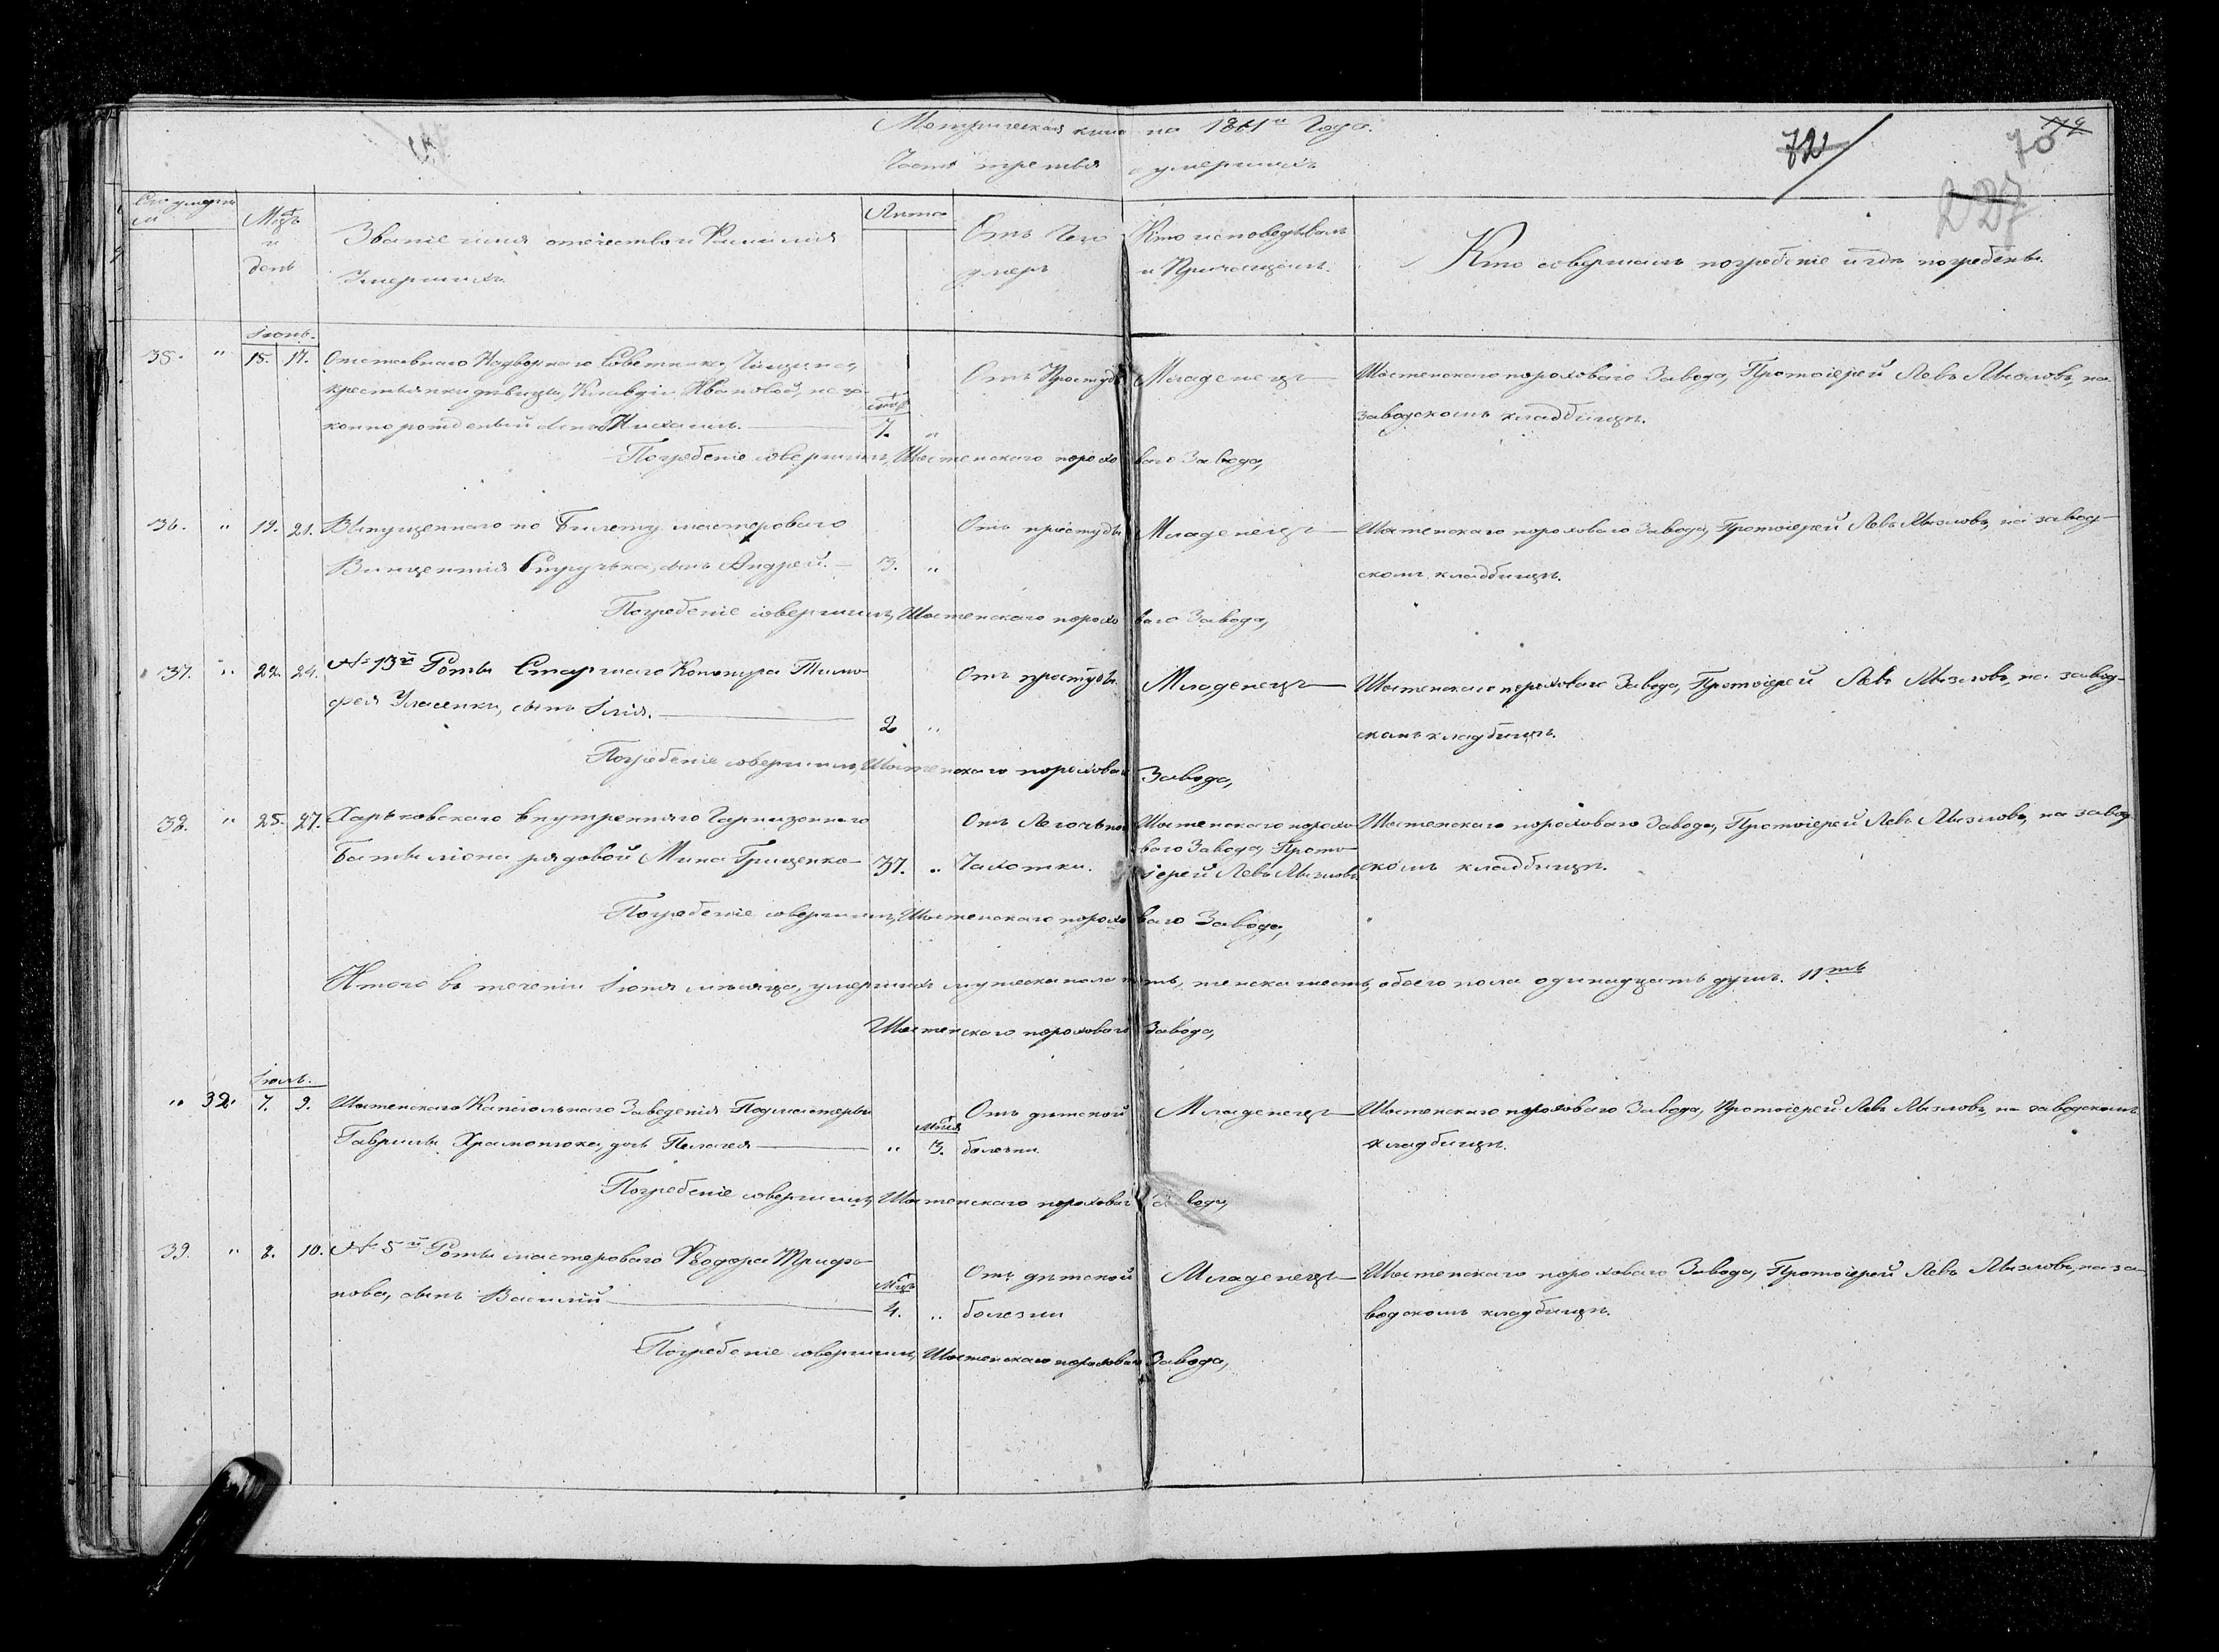 Метрическая книга на 1861й Годъ.
Часть третья о умершихъ
72
70
227
Мѣсяцъ и день
Званіе имя отечество и Фамилія Умершихъ
Лѣта
Отъ чего умеръ
Кто исповедывалъ и Причащалъ.
Кто совершалъ погребеніе и гдѣ погребены.
Іюнь.
35. " 15. 17. Отставнаго Надворнаго Совѣтника
Отъ Простуды
Младенецъ
Шостенскаго пороховаго Завода, Протоіерей Левъ Мызловъ, на
крестьянки дѣвицы, Клавдіи Ивановой, неза-
заводскомъ кладбищѣ.
конно рожденный сынъ Михаилъ. 7. "
Погребеніе совершилъ, Шостенскаго пороховаго Завода,
36. " 19. 21. Выпущеннаго по Билету мастероваго
Отъ простуды
Младенецъ
Шостенскаго пороховаго Завода, Протоіерей Левъ Мызловъ, на завод-
Винцентія сынъ Андрей. 3. "
скомъ кладбищѣ.
Погребеніе совершилъ, Шостенскаго пороховаго Завода,
37. " 22. 24. № 13й Роты Старшаго Конопира Тимо-
Отъ простуды.
Младенецъ
Шостенскаго пороховаго Завода, Протоіерей Левъ Мызловъ, на завод-
фея Уласенки, сынъ Илія. 2 "
скомъ кладбищѣ.
Погребеніе совершилъ, Шостенскаго пороховаго Завода,
38. " 25. 27. Харьковскаго внутренняго Гарнизоннаго
Отъ Легочьной
Шостенскаго порохо-
Шостенскаго пороховаго Завода, Протоіерей Левъ Мызловъ, на завод-
Баталіона рядовой Мина Грищенко 37. " Чахотки.
ваго Завода, Прото-
іерей Левъ Мызловъ
скомъ кладбищѣ.
Погребеніе совершилъ, Шостенскаго пороховаго Завода,
Итого въ теченіи Іюня мѣсяца, умершихъ мужеска пола пять, женска шесть, обоего пола одинадцать душъ. 11ть
Шостенскаго пороховаго Завода,
Іюль.
" 32. 7. 9. Шостенскаго Капсюльнаго Заведенія Подмастерьи
Отъ дѣтской
Младенецъ
Шостенскаго пороховаго Завода, Протоіерей Левъ Мызловъ, на заводскомъ
Гаврилы Храмонюка, дочь Пелагея " 3. болезни
кладбищѣ.
Погребеніе совершилъ, Шостенскаго пороховаго Завода,
39. " 8. 10. № 5й Роты мастероваго Феодора Трифо-
Отъ дѣтской
Младенецъ
Шостенскаго пороховаго Завода, Протоіерей Левъ Мызловъ, на за-
нова, сынъ Василій 4. " болезни
водскомъ кладбищѣ.
Погребеніе совершилъ, Шостенскаго пороховаго Завода,